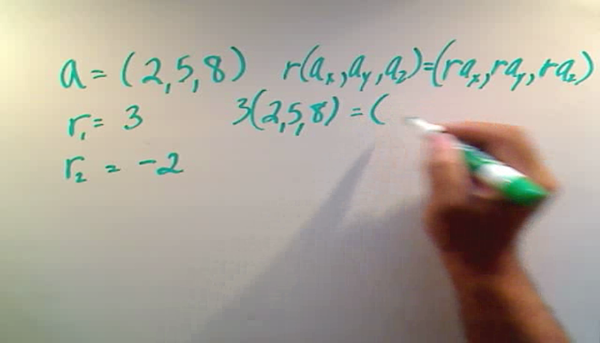 a = (2,5,8) r(aₓ,aᵧ,a_z)=(raₓ,raᵧ,ra_z)
r₁ = 3 3(2,5,8) = (
r₂ = -2